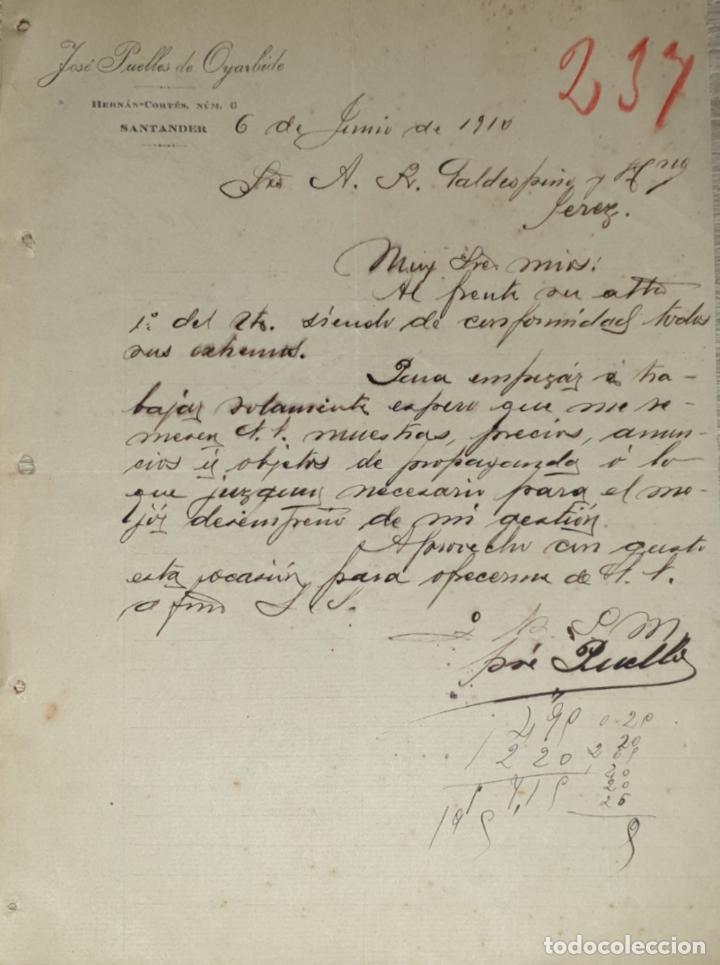 José Puelles de Oyarbide
237
HERNÁN-CORTÉS, NÚM. 6
SANTANDER
6 de Junio de 1910
Sres A. R. Valdespino y Hno
Jerez.
Muy Sres mios:
Al frente su atta
1º del cte. siendo de conformidad todos
sus extremos.
Para empezár á tra-
bajár solamente espero que me re-
mesen V.V. muestras, precios, anun-
cios y objetos de propaganda ó lo
que juzguen necesario para el me-
jór desempeño de mi gestión.
Aprovecho con gusto
esta ocasión para ofrecerme de V.V.
afmo S. S.
q. b. s. m
José Puelles
2,90 0-20
1 220 2,
20
20
25
195
9
todocoleccion